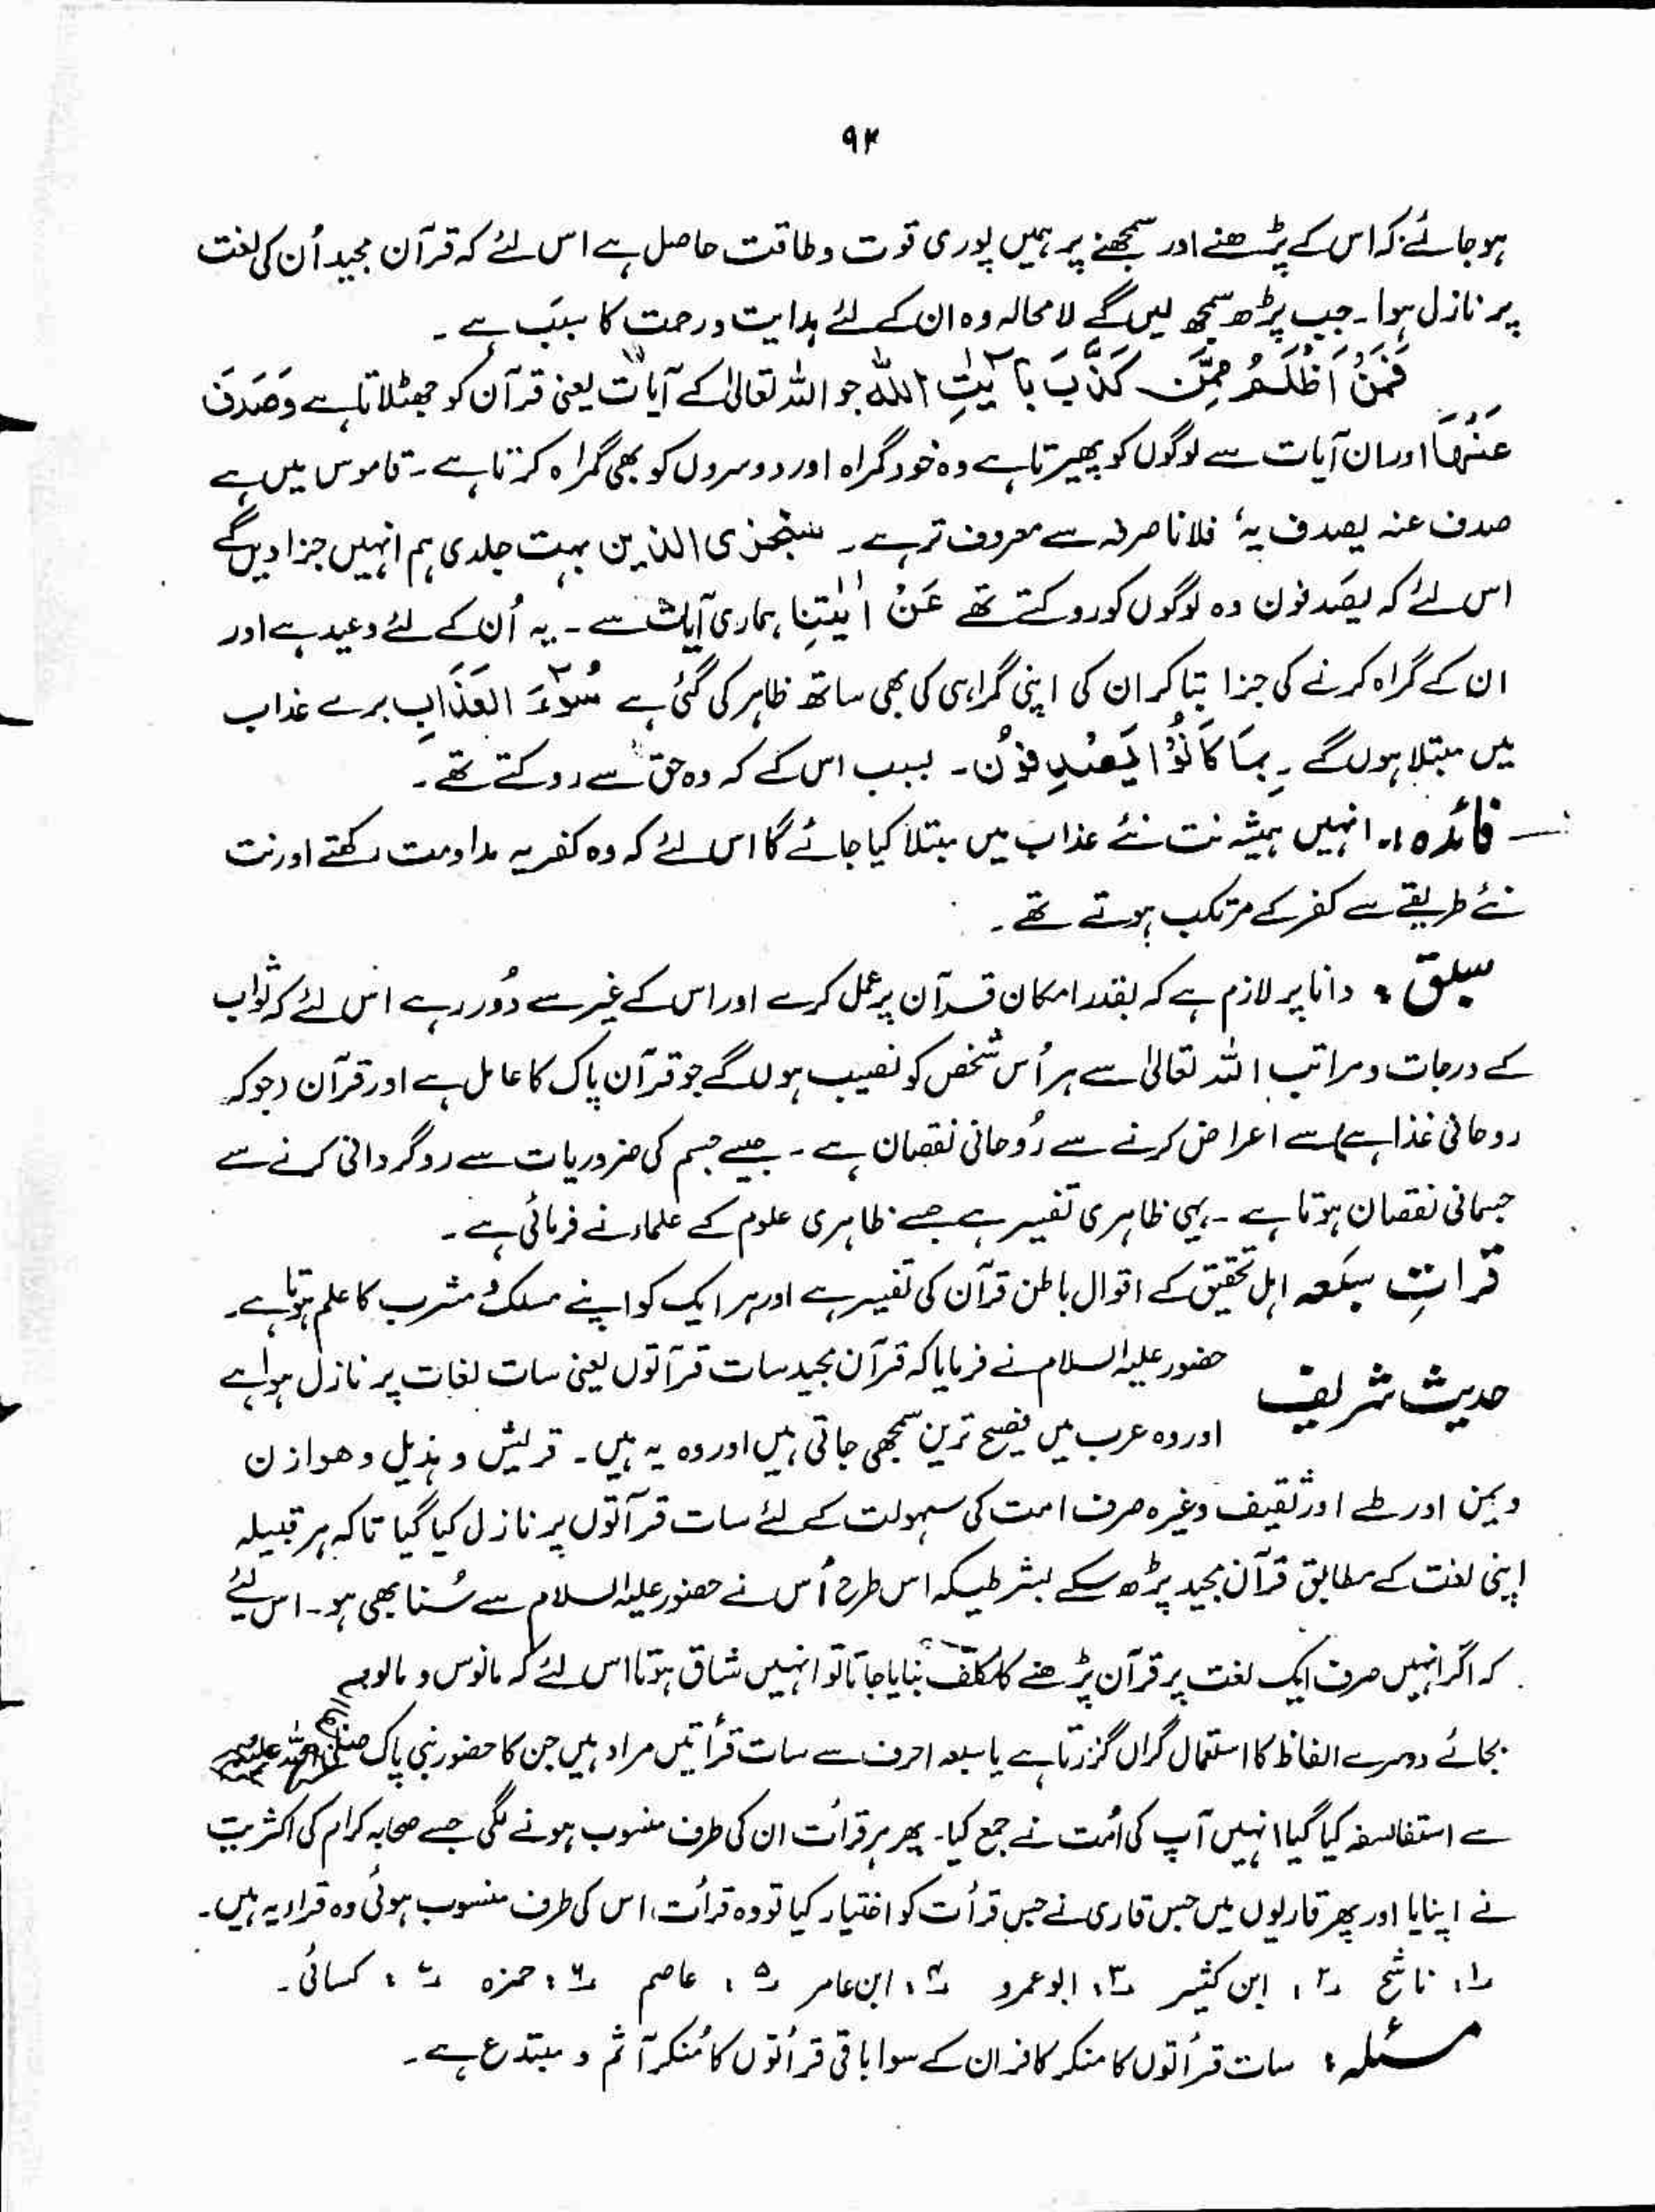 ۹۴
ہوجائے کہ اس کے پڑھنے اور سمجھنے پر ہمیں پوری قوت و طاقت حاصل ہے اس لئے کہ قرآن مجید اُن کی لغت
پر نازل ہوا۔ جب پڑھ سمجھ لیں گے لامحالہ وہ ان کے لئے ہدایت و رحمت کا سبب ہے۔
فَمَنْ اَظْلَمُ مِمَّنْ کَذَّبَ بِاٰیٰتِ اللہِ جو اللہ تعالیٰ کے آیات یعنی قرآن کو جھٹلاتا ہے وَصَدَفَ
عَنْہَا اور ان آیات سے لوگوں کو پھیرتا ہے وہ خود گمراہ اور دوسروں کو بھی گمراہ کرتا ہے۔ قاموس میں ہے
صدف عنہ یصدف یہ فلانا صرفہ سے معروف تر ہے۔ سنجزی الذین بہت جلدی ہم انہیں جزا دیں گے
اس لئے کہ یصدفون وہ لوگوں کو روکتے تھے عَنْ اٰیٰتِنَا ہماری آیات سے۔ یہ اُن کے لئے وعید ہے اور
ان کے گمراہ کرنے کی جزا بتا کر ان کی اپنی گمراہی کی بھی ساتھ ظاہر کی گئی ہے سُوْٓءَ الْعَذَابِ برے عذاب
میں مبتلا ہوں گے۔ بِمَا کَانُوْا یَصْدِفُوْنَ۔ بسبب اس کے کہ وہ حق سے روکتے تھے۔
فائدہ :۔ انہیں ہمیشہ نت نئے عذاب میں مبتلا کیا جائے گا اس لئے کہ وہ کفر پہ مداومت رکھتے اور نت
نئے طریقے سے کفر کے مرتکب ہوتے تھے۔
سبق : دانا پر لازم ہے کہ بقدر امکان قرآن پر عمل کرے اور اس کے غیر سے دُور رہے اس لئے کہ ثواب
کے درجات و مراتب اللہ تعالیٰ سے ہر اُس شخص کو نصیب ہوں گے جو قرآن پاک کا عامل ہے اور قرآن (جو کہ
روحانی غذا ہے) سے اعراض کرنے سے رُوحانی نقصان ہے۔ جیسے جسم کی ضروریات سے روگردانی کرنے سے
جسمانی نقصان ہوتا ہے۔ یہی ظاہری تفسیر ہے جسے ظاہری علوم کے علماء نے فرمائی ہے۔
قراتِ سبعہ اہل تحقیق کے اقوال باطن قرآن کی تفسیر ہے اور ہر ایک کو اپنے مسلک و مشرب کا علم ہوتا ہے۔
حدیث شریف حضور علیہ السلام نے فرمایا کہ قرآن مجید سات قرآتوں یعنی سات لغات پر نازل ہوا ہے
اور وہ عرب میں فصیح ترین سمجھی جاتی ہیں اور وہ یہ ہیں۔ قریش و ہذیل و ھوازن
و یمن اور طے اور ثقیف وغیرہ صرف امت کی سہولت کے لئے سات قرآتوں پر نازل کیا گیا تاکہ ہر قبیلہ
اپنی لغت کے مطابق قرآن مجید پڑھ سکے بشرطیکہ اس طرح اُس نے حضور علیہ السلام سے سُنا بھی ہو۔ اس لئے
کہ اگر انہیں صرف ایک لغت پر قرآن پڑھنے کا مکلّف بنایا جاتا تو انہیں شاق ہوتا اس لئے کہ مانوس و مالوف
بجائے دوسرے الفاظ کا استعمال گراں گزرتا ہے یا سبعہ احرف سے سات قرأتیں مراد ہیں جن کا حضور نبی پاک صلی اللہ علیہ وسلم
سے استفاسفہ کیا گیا انہیں آپ کی اُمت نے جمع کیا۔ پھر ہر قرأت ان کی طرف منسوب ہونے لگی جسے صحابہ کرام کی اکثریت
نے اپنایا اور پھر قاریوں میں جس قاری نے جس قرأت کو اختیار کیا تو وہ قرأت اس کی طرف منسوب ہوئی وہ قراء یہ ہیں۔
۱؂: نافع ۲؂: ابن کثیر ۳؂: ابوعمرو ۴؂: ابن عامر ۵؂: عاصم ۶؂: حمزہ ۷؂: کسائی۔
مسئلہ : سات قرأتوں کا منکر کافر ان کے سوا باقی قرأتوں کا مُنکر آثم و مبتدع ہے۔